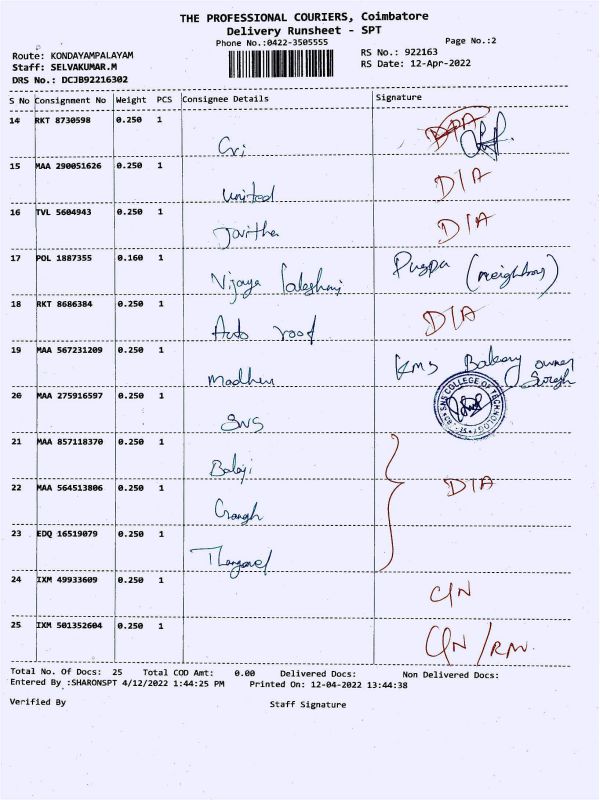 THE PROFESSIONAL COURIERS, Coimbatore
Delivery Runsheet - SPT
Phone No.:0422-3505555 Page No.:2
Route: KONDAYAMPALAYAM RS No.: 922163
Staff: SELVAKUMAR.M RS Date: 12-Apr-2022
DRS No.: DCJB92216302
S No Consignment No Weight PCS Consignee Details Signature
14 RKT 8730598 0.250 1
Cri
15 MAA 290051626 0.250 1 D/A
United
16 TVL 5604943 0.250 1 D/A
17 POL 1887355 0.160 1
Vijaya
18 RKT 8686384 0.250 1 D/A
Auto roof
19 MAA 567231209 0.250 1 KMS Bakery owner
Madhu
20 MAA 275916597 0.250 1 SNS COLLEGE OF TECHNOLOGY
SNS
21 MAA 857118370 0.250 1
Balaji
22 MAA 564513806 0.250 1 D/A
23 EDQ 16519079 0.250 1
24 IXM 49933609 0.250 1 C/N
25 IXM 501352604 0.250 1 C/N /RN.
Total No. Of Docs: 25 Total COD Amt: 0.00 Delivered Docs: Non Delivered Docs:
Entered By :SHARONSPT 4/12/2022 1:44:25 PM Printed On: 12-04-2022 13:44:38
Verified By Staff Signature